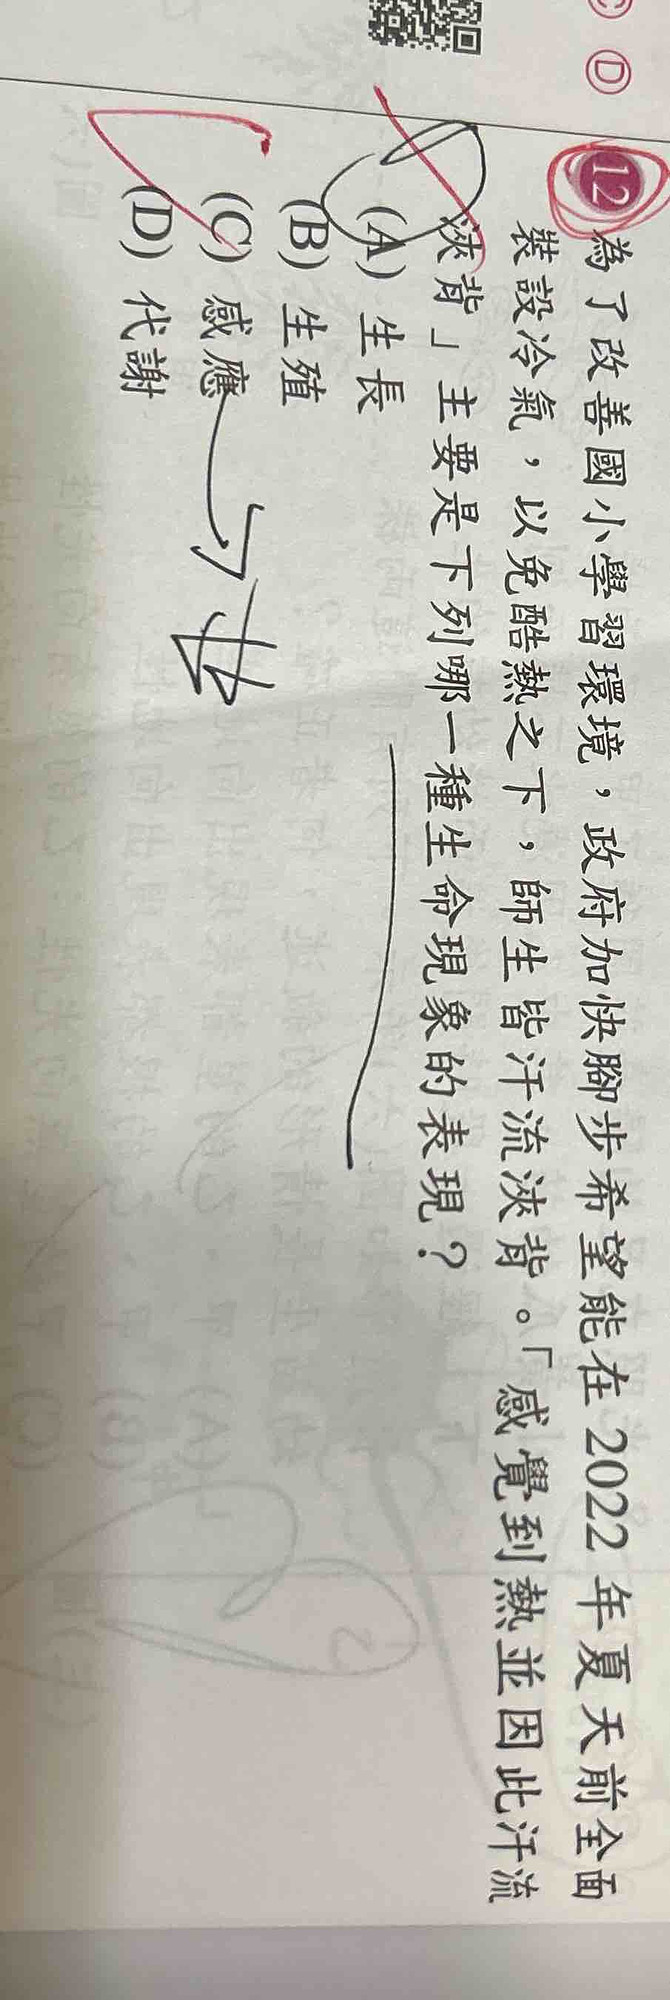 Ⓓ
12 為了改善國小學習環境，政府加快腳步希望能在 2022 年夏天前全面
裝設冷氣，以免酷熱之下，師生皆汗流浹背。「感覺到熱並因此汗流
浹背」主要是下列哪一種生命現象的表現？
(A) 生長
(B) 生殖
(C) 感應
(D) 代謝